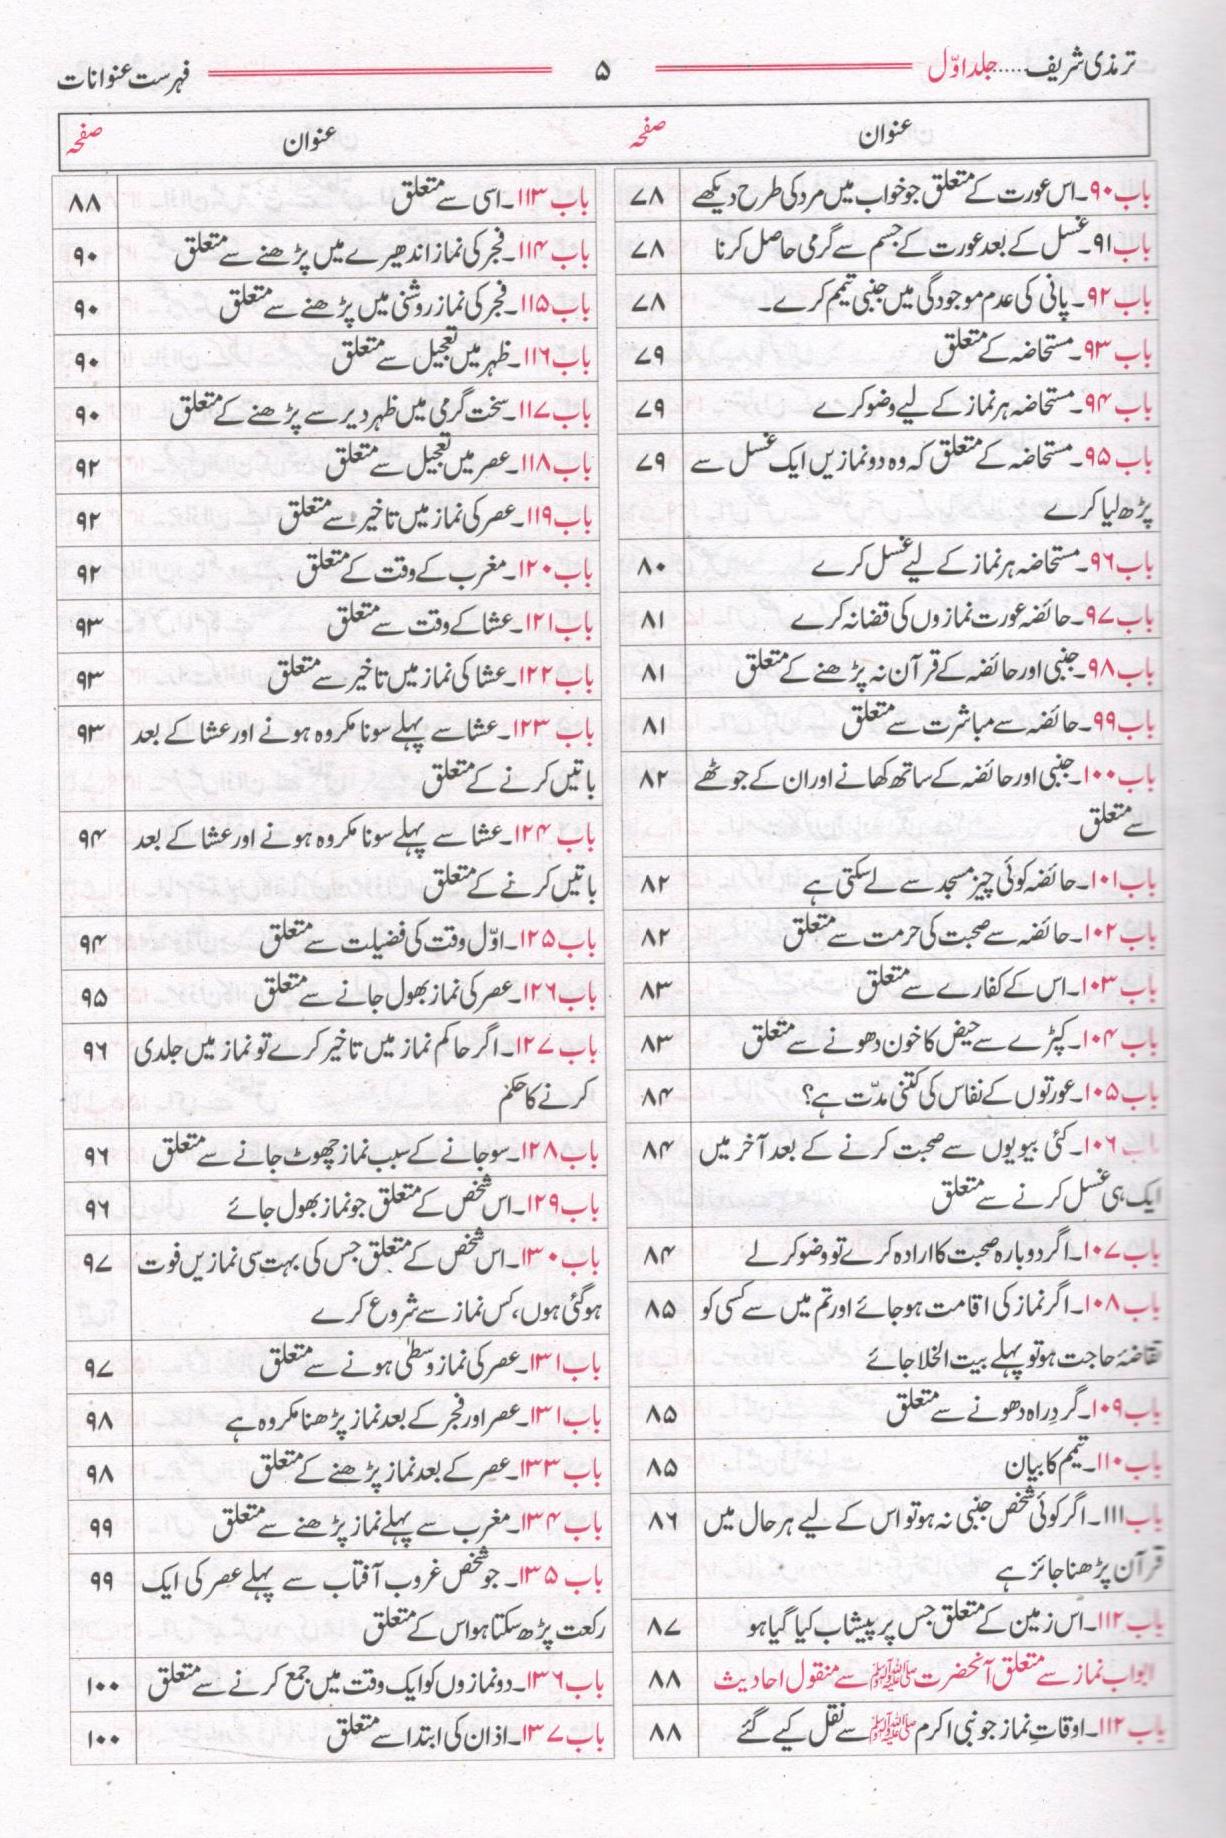 ترمذی شریف.....جلد اوّل
۵
فہرست عنوانات
عنوان صفحہ
باب ۹۰۔ اس عورت کے متعلق جو خواب میں مرد کی طرح دیکھے ۷۸
باب ۹۱۔ غسل کے بعد عورت کے جسم سے گرمی حاصل کرنا ۷۸
باب ۹۲۔ پانی کی عدم موجودگی میں جنبی تیمم کرے۔ ۷۸
باب ۹۳۔ مستحاضہ کے متعلق ۷۹
باب ۹۴۔ مستحاضہ ہر نماز کے لیے وضو کرے ۷۹
باب ۹۵۔ مستحاضہ کے متعلق کہ وہ دو نمازیں ایک غسل سے ۷۹
پڑھ لیا کرے
باب ۹۶۔ مستحاضہ ہر نماز کے لیے غسل کرے ۸۰
باب ۹۷۔ حائضہ عورت نمازوں کی قضا نہ کرے ۸۱
باب ۹۸۔ جنبی اور حائضہ کے قرآن نہ پڑھنے کے متعلق ۸۱
باب ۹۹۔ حائضہ سے مباشرت سے متعلق ۸۱
باب ۱۰۰۔ جنبی اور حائضہ کے ساتھ کھانے اور ان کے جوٹھے ۸۲
سے متعلق
باب ۱۰۱۔ حائضہ کوئی چیز مسجد سے لے سکتی ہے ۸۲
باب ۱۰۲۔ حائضہ سے صحبت کی حرمت سے متعلق ۸۲
باب ۱۰۳۔ اس کے کفارے سے متعلق ۸۳
باب ۱۰۴۔ کپڑے سے حیض کا خون دھونے سے متعلق ۸۳
باب ۱۰۵۔ عورتوں کے نفاس کی کتنی مدّت ہے؟ ۸۴
باب ۱۰۶۔ کئی بیویوں سے صحبت کرنے کے بعد آخر میں ۸۴
ایک ہی غسل کرنے سے متعلق
باب ۱۰۷۔ اگر دوبارہ صحبت کا ارادہ کرے تو وضو کر لے ۸۴
باب ۱۰۸۔ اگر نماز کی اقامت ہو جائے اور تم میں سے کسی کو ۸۵
تقاضۂ حاجت ہو تو پہلے بیت الخلا جائے
باب ۱۰۹۔ گردِ راہ دھونے سے متعلق ۸۵
باب ۱۱۰۔ تیمم کا بیان ۸۵
باب ۱۱۱۔ اگر کوئی شخص جنبی نہ ہو تو اس کے لیے ہر حال میں ۸۶
قرآن پڑھنا جائز ہے
باب ۱۱۲۔ اس زمین کے متعلق جس پر پیشاب کیا گیا ہو ۸۷
ابواب نماز سے متعلق آنحضرت ﷺ سے منقول احادیث ۸۸
باب ۱۱۲۔ اوقاتِ نماز جو نبی اکرم ﷺ سے نقل کیے گئے ۸۸
عنوان صفحہ
باب ۱۱۳۔ اسی سے متعلق ۸۸
باب ۱۱۴۔ فجر کی نماز اندھیرے میں پڑھنے سے متعلق ۹۰
باب ۱۱۵۔ فجر کی نماز روشنی میں پڑھنے سے متعلق ۹۰
باب ۱۱۶۔ ظہر میں تعجیل سے متعلق ۹۰
باب ۱۱۷۔ سخت گرمی میں ظہر دیر سے پڑھنے کے متعلق ۹۰
باب ۱۱۸۔ عصر میں تعجیل سے متعلق ۹۲
باب ۱۱۹۔ عصر کی نماز میں تاخیر سے متعلق ۹۲
باب ۱۲۰۔ مغرب کے وقت کے متعلق ۹۲
باب ۱۲۱۔ عشا کے وقت سے متعلق ۹۳
باب ۱۲۲۔ عشا کی نماز میں تاخیر سے متعلق ۹۳
باب ۱۲۳۔ عشا سے پہلے سونا مکروہ ہونے اور عشا کے بعد ۹۳
باتیں کرنے کے متعلق
باب ۱۲۴۔ عشا سے پہلے سونا مکروہ ہونے اور عشا کے بعد ۹۴
باتیں کرنے کے متعلق
باب ۱۲۵۔ اوّل وقت کی فضیلت سے متعلق ۹۴
باب ۱۲۶۔ عصر کی نماز بھول جانے سے متعلق ۹۵
باب ۱۲۷۔ اگر حاکم نماز میں تاخیر کرے تو نماز میں جلدی ۹۶
کرنے کا حکم
باب ۱۲۸۔ سو جانے کے سبب نماز چھوٹ جانے سے متعلق ۹۶
باب ۱۲۹۔ اس شخص کے متعلق جو نماز بھول جائے ۹۶
باب ۱۳۰۔ اس شخص کے متعلق جس کی بہت سی نمازیں فوت ۹۷
ہو گئی ہوں، کس نماز سے شروع کرے
باب ۱۳۱۔ عصر کی نماز وسطیٰ ہونے سے متعلق ۹۷
باب ۱۳۱۔ عصر اور فجر کے بعد نماز پڑھنا مکروہ ہے ۹۸
باب ۱۳۳۔ عصر کے بعد نماز پڑھنے کے متعلق ۹۸
باب ۱۳۴۔ مغرب سے پہلے نماز پڑھنے سے متعلق ۹۹
باب ۱۳۵۔ جو شخص غروب آفتاب سے پہلے عصر کی ایک ۹۹
رکعت پڑھ سکتا ہو اس کے متعلق
باب ۱۳۶۔ دو نمازوں کو ایک وقت میں جمع کرنے سے متعلق ۱۰۰
باب ۱۳۷۔ اذان کی ابتدا سے متعلق ۱۰۰